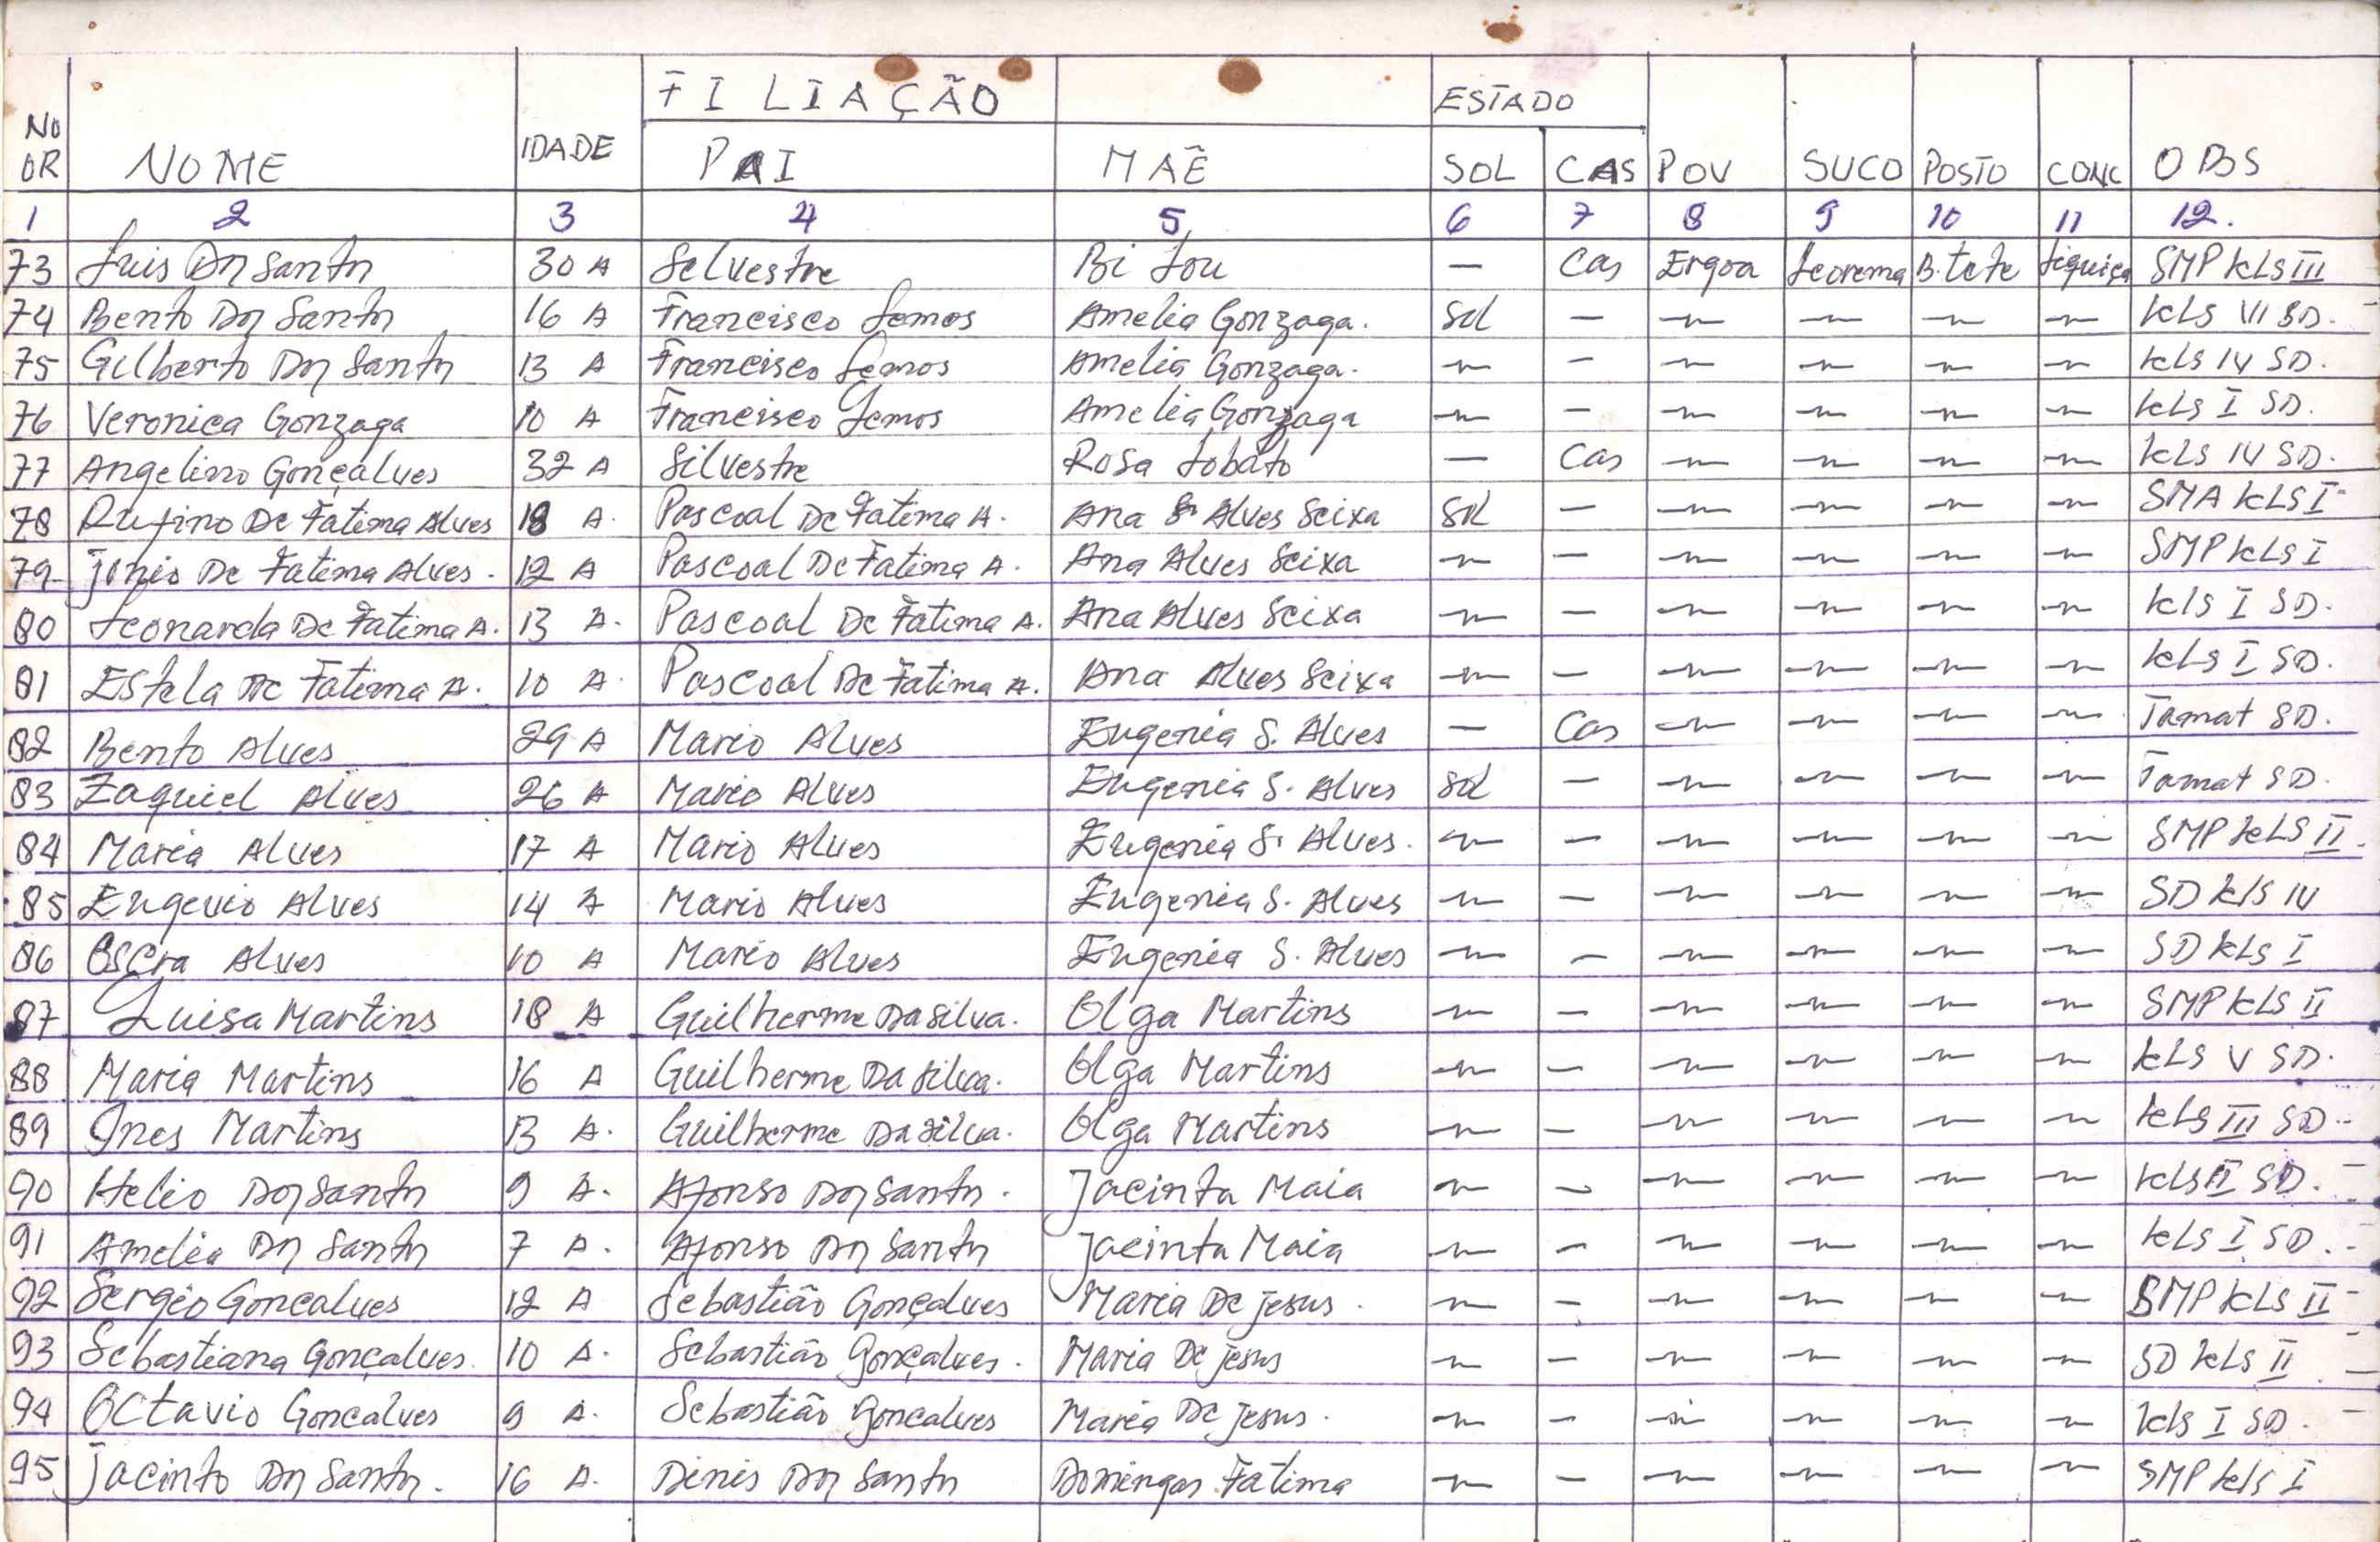 FILIAÇÃO ESTADO
No OR NOME IDADE PAI MAÊ SOL CAS POV SUCO POSTO CONC OBS
1 2 3 4 5 6 7 8 9 10 11 12.
73 Luis Dos Santos 30 A Selvestre Bi Lou — Cas Ergoa Leorema B. tete Liquiça SMP KLS III
74 Bento Dos Santos 16 A Francisco Lemos Amelia Gonzaga. Sol — — — — — KLS VI SD.
75 Gilberto Dos Santos 13 A Francisco Lemos Amelia Gonzaga. — — — — — — KLS IV SD.
76 Veronica Gonzaga 10 A Francisco Lemos Amelia Gonzaga — — — — — — KLS I SD.
77 Angelino Gonçalves 32 A Silvestre Rosa Lobato — Cas — — — — KLS IV SD.
78 Rufino De Fatima Alves 18 A. Pascoal De Fatima A. Ana S. Alves Seixa Sol — — — — — SMA KLS I
79 De Fatima Alves. 12 A Pascoal De Fatima A. Ana Alves Seixa — — — — — — SMP KLS I
80 Leonarda De Fatima A. 13 A. Pascoal De Fatima A. Ana Alves Seixa — — — — — — Kls I SD.
81 Estela De Fatima A. 10 A. Pascoal De Fatima A. Ana Alves Seixa — — — — — — KLS I SD.
82 Bento Alves 29 A Mario Alves Eugenia S. Alves — Cas — — — — Tamat SD.
83 Zaquiel Alves 26 A Mario Alves Eugenia S. Alves Sol — — — — — Tamat SD.
84 Maria Alves 17 A Mario Alves Eugenia S. Alves. — — — — — — SMP KLS II.
85 Eugenio Alves 14 A Mario Alves Eugenia S. Alves — — — — — — SD Kls IV
86 Oscra Alves 10 A Mario Alves Eugenia S. Alves — — — — — — SD KLS I
87 Luisa Martins 18 A Guilherme Da Silva. Olga Martins — — — — — — SMP KLS II
88 Maria Martins 16 A Guilherme Da Silva. Olga Martins — — — — — — KLS V SD.
89 Ines Martins 13 A. Guilherme Da Silva. Olga Martins — — — — — — KLS III SD.
90 Helio Dos Santos 9 A. Afonso Dos Santos. Jacinta Maia — — — — — — KLS II SD.
91 Amelia Dos Santos 7 A. Afonso Dos Santos Jacinta Maia — — — — — — KLS I SD.
92 Sergio Goncalves 12 A Sebastião Gonçalves Maria De Jesus. — — — — — — SMP KLS II
93 Sebastiana Gonçalves. 10 A. Sebastião Gonçalves. Maria De Jesus — — — — — — SD KLS II
94 Octavio Goncalves 9 A. Sebastião Goncalves Maria De Jesus. — — — — — — Kls I SD.
95 Jacinto Dos Santos. 16 A. Dinis Dos Santos Domingas Fatima — — — — — — SMP Kls I